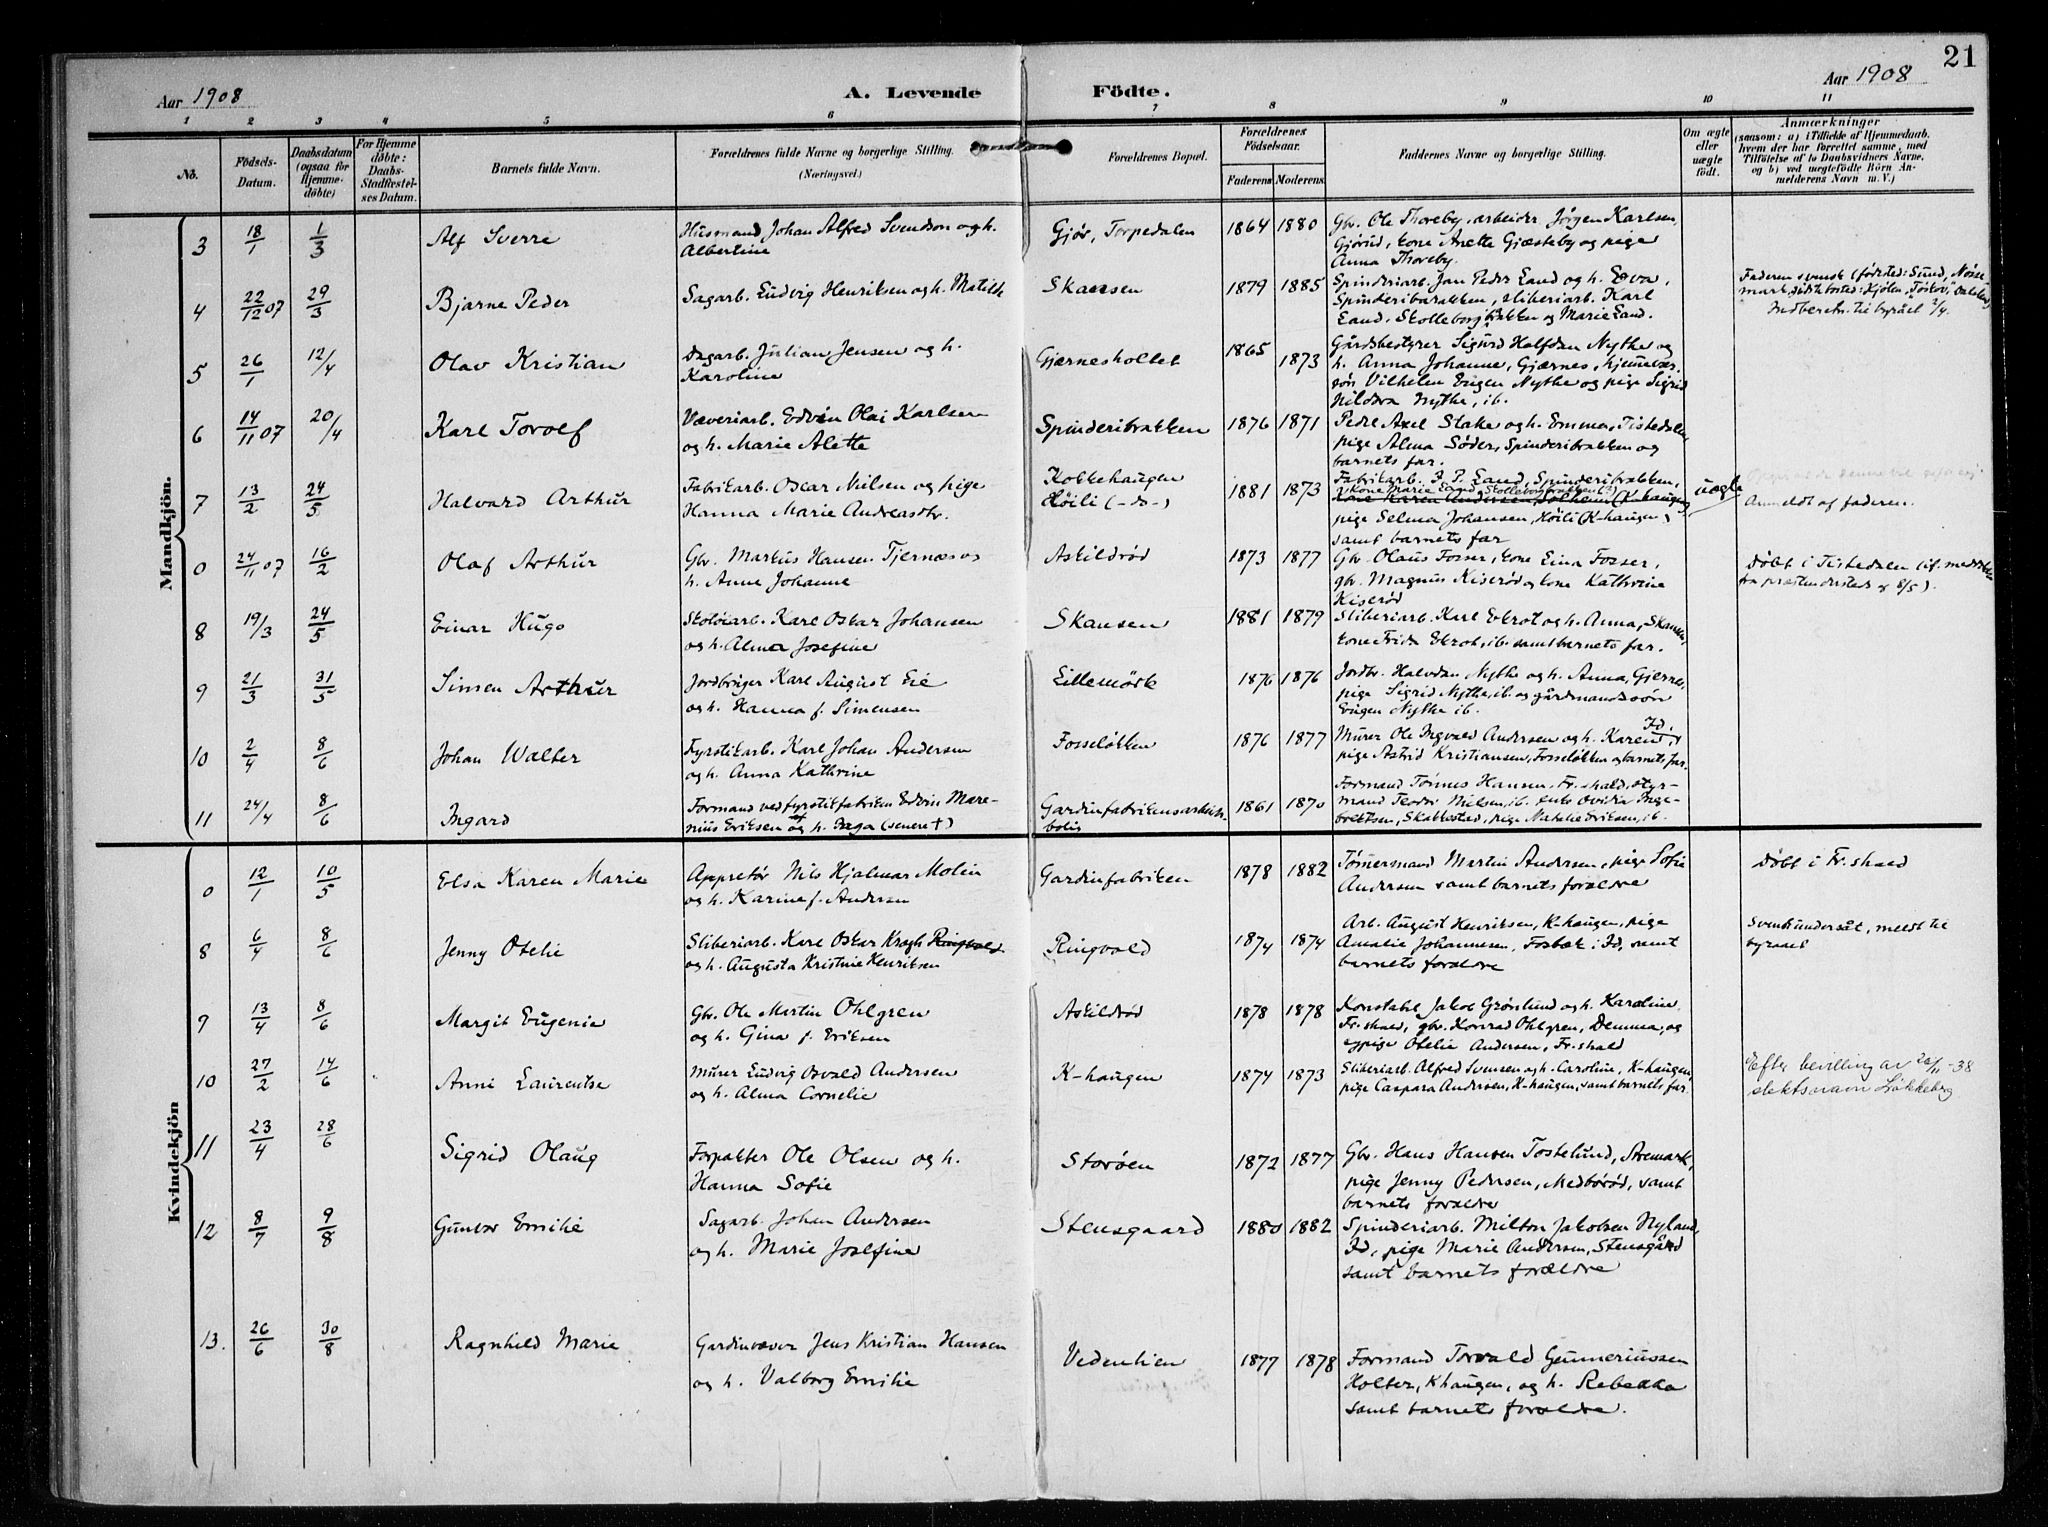 21
Aar 1908
A. Levende Födte.
Aar 1908
1 2 3 4 5 6 7 8 9 10 11
No. Födsels-Datum. Daabsdatum (ogsaa for Hjemme-döbte) For Hjemme döbte: Daabs-Stadfæstelses Datum. Barnets fulde Navn. Forældrenes fulde Navne og borgerlige Stilling. (Næringsvei.) Forældrenes Bopæl. Forældrenes Födselsaar. Faderens Moderens Faddernes Navne og borgerlige Stilling. Om ægte eller uægte födt. Anmærkninger
(saasom: a) i Tilfælde af Hjemmedaab, hvem der har forrettet samme, med Tilföielse af to Daabsvidners Navne, og b) ved uægtefödte Börn Anmelderens Navn m. V.)
Mandkjön.
3 18/1 1/3 Alf Sverre Husmand Johan Alfred Svendson og h. Albertine Gjør, Torpedalen 1864 1880 Gbr. Ole Thoreby, arbeider Jørgen Karlsen, Gjørud, kone Anette Gjæsteby og pige Anna Thoreby.
4 22/12 07 29/3 Bjarne Peder Sagarb. Ludvig Henriksen og h. Matilde Skansen 1879 1885 Spinderiarb. Jan Peder Land og h. Lova, Spinderibarakken, sliberiarb. Karl Land, Skolleborgbrakken og Marie Land. Faderen svensk (fødested: Sund, Nøssemark, sidste bosted: Kjølen, Dalsland) Indberetn. til byrået 2/4.
5 26/1 12/4 Olav Kristian Dagarb. Julian Jensen og h. Karoline Gjærnesholtet 1865 1873 Gårdsbestyrer Sigurd Halfdan Nythe og h. Anna Johanne, Gjærnes, hjemmeværr. søn Vilhelm Eugen Nythe og pige Sigrid Hildora Nythe, ib.
6 14/11 07 20/4 Karl Torolf Væveriarb. Edvin Olai Karlsen og h. Marie Alette Spinderibrakken 1876 1871 Peder Axel Stake og h. Emma, Tistedalen, pige Alma Søder, Spinderibrakken og barnets far.
7 13/2 24/5 Halvard Arthur Fabrikarb. Oscar Nilsen og pige Hanna Marie Andreasdtr. Kokkehaugen Høili (-ds-) 1881 1873 Fabrikarb. J. P. Land, Spinderibrakken, kone Marie Land, Skolleborgbrakken (?) kone Karen Andersen Solheim (K-haugen) pige Selma Johansen, Høili (K-haugen) samt barnets far uægte Anmeldt af faderen.
0 24/11 07 16/2 Olaf Arthur Gbr. Markus Hansen Tjernæs og h. Anne Johanne Askildrød 1873 1877 Gbr. Olaus Fosser, kone Lina Fosser, gbr. Magnus Kiserød og kone Kathrine Kiserød Døbt i Tistedalen (if. meddelelse fra præsten dersteds af 8/5).
8 19/3 24/5 Einar Hugo Skotøiarb. Karl Oskar Johansen og h. Alma Josefine Skansen 1881 1879 Sliberiarb. Karl Ekrot og h. Anna, Skansen, kone Frida Ekrot, ib. samt barnets far.
9 21/3 31/5 Simen Arthur Jordbruger Karl August Lie og h. Hanna f. Simensen Lillemørk 1876 1876 Jordbr. Halvdan Nythe og h. Anna, Gjernes, pige Sigrid Nythe, ib. og gårdmandssøn Eugen Nythe ib.
10 2/4 8/6 Johan Walter Fyrstikarb. Karl Johan Andersen og h. Anna Kathrine Fosseløkken 1876 1877 Murer Ole Ingvald Andersen og h. Karen, Id, pige Astrid Kristiansen, Fosseløkken og barnets far.
11 24/4 8/6 Ingard Formand ved fyrstikfabriken Edvin Marenius Eriksen og h. Inga (senere †) Gardinfabrikens arbeiderbolig 1861 1870 Formand Tønnes Hansen, Fr.shald, styrmand Teodor Nielsen, ib. enke Ovidia Ingebretsen, Skabbestad, pige Natalie Eriksen, ib.
Kvindekjön
0 12/1 10/5 Elsa Karen Marie Appretør Nils Hjalmar Molin og h. Karine f. Andersen Gardinfabriken 1878 1882 Tømmermand Martin Andersen, pige Sofie Andersen samt barnets forældre Døbt i Fr.shald
8 6/4 8/6 Jenny Otelie Sliberiarb. Karl Oskar Kragh Ringvold og h. Augusta Kristine Henriksen Ringvold 1874 1874 Arb. August Henriksen, K-haugen, pige Amalie Johannesen, Fosbæk i Id, samt barnets forældre Svensk undersåt, meldt til byraaet
9 13/4 8/6 Margit Eugenie Gbr. Ole Martin Ohlgren og h. Gina f. Eriksen Askildrød 1878 1878 Konstabel Jakob Grønlund og h. Karoline, Fr.shald, gbr. Konrad Ohlgren, Demma, og sypige Otelie Andersen, Fr.shald
10 27/2 14/6 Anni Laurentse Murer Ludvig Osvald Andersen og h. Alma Cornelie K-haugen 1874 1873 Sliberiarb. Alfred Svensen og h. Caroline, K-haugen, pige Caspara Andersen, K-haugen, samt barnets far. Efter bevilling av 26/11-38 slektsnavn Løkkeberg
11 23/4 28/6 Sigrid Olaug Forpakter Ole Olsen og h. Hanna Sofie Storøen 1872 1877 Gbr. Hans Hansen Tostelund, Aremark, pige Jenny Pedersen, Medbørød, samt barnets forældre
12 8/7 9/8 Gunvor Emilie Sagarb. Johan Andersen og h. Marie Josefine Stensgaard 1880 1882 Spinderiarb. Milton Jakobsen Nyland, Id, pige Marie Andersen, Stensgård samt barnets forældre
13. 26/6 30/8 Ragnhild Marie Gardinvæver Jens Kristian Hansen og h. Valborg Emilie Vedenlien 1877 1878 Formand Torvald Gunneriussen Holter, Khaugen, og h. Rebekka samt barnets forældre.